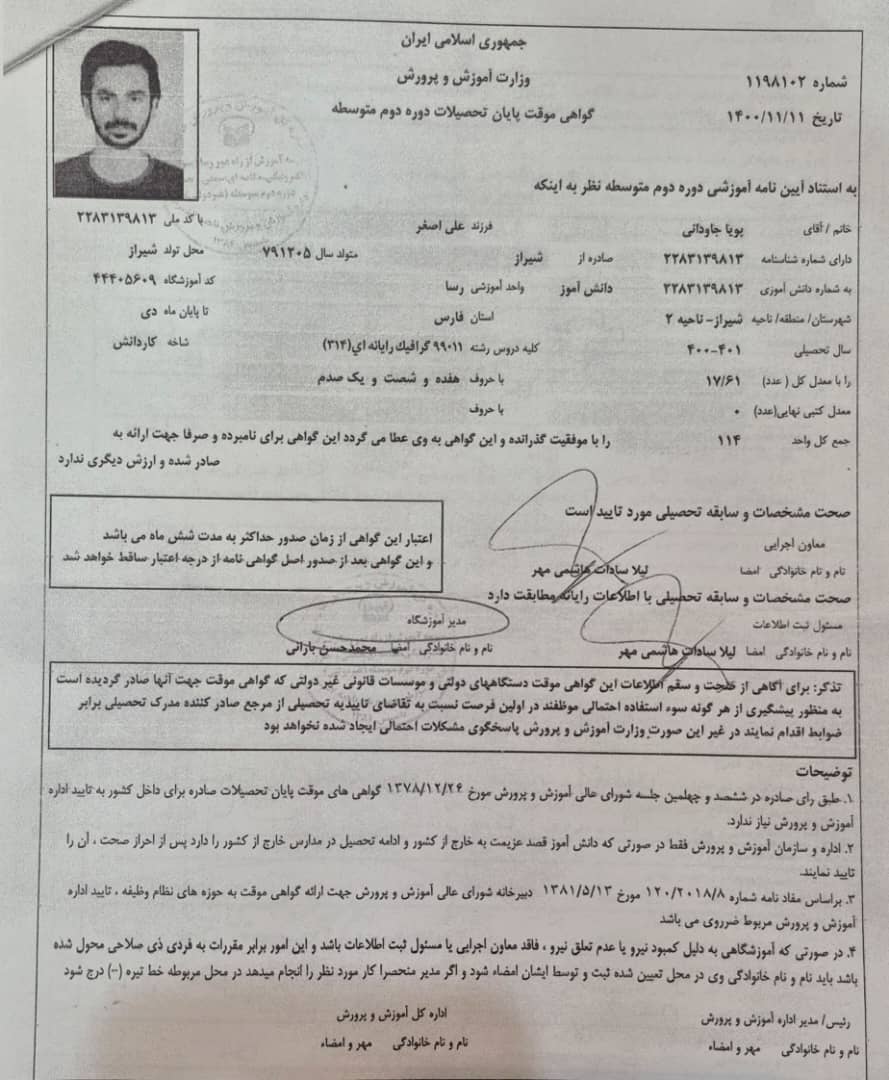 جمهوری اسلامی ایران
وزارت آموزش و پرورش
گواهی موقت پایان تحصیلات دوره دوم متوسطه
شماره ۱۱۹۸۱۰۲
تاریخ ۱۴۰۰/۱۱/۱۱
به استناد آیین نامه آموزشی دوره دوم متوسطه نظر به اینکه
خانم / آقای پویا جاودانی فرزند علی اصغر با کد ملی ۲۲۸۳۱۳۹۸۱۳
دارای شماره شناسنامه ۲۲۸۳۱۳۹۸۱۳ صادره از شیراز متولد سال ۷۹۱۲۰۵ محل تولد شیراز
به شماره دانش آموزی ۲۲۸۳۱۳۹۸۱۳ دانش آموز واحد آموزشی رسا کد آموزشگاه ۴۴۴۰۵۶۰۹
شهرستان/ منطقه/ ناحیه شیراز- ناحیه ۲ استان فارس تا پایان ماه دی
سال تحصیلی ۴۰۰-۴۰۱ کلیه دروس رشته ۹۹۰۱۱ گرافيك رايانه اي(۳۱۴) شاخه کاردانش
را با معدل کل ( عدد) ۱۷/۶۱ با حروف هفده و شصت و یک صدم
معدل کتبی نهایی(عدد) ۰ با حروف
جمع کل واحد ۱۱۴ را با موفقیت گذرانده و این گواهی به وی عطا می گردد این گواهی برای نامبرده و صرفا جهت ارائه به
صادر شده و ارزش دیگری ندارد
صحت مشخصات و سابقه تحصیلی مورد تایید است
معاون اجرایی
نام و نام خانوادگی امضا لیلا سادات هاشمی مهر
اعتبار این گواهی از زمان صدور حداکثر به مدت شش ماه می باشد
و این گواهی بعد از صدور اصل گواهی نامه از درجه اعتبار ساقط خواهد شد
صحت مشخصات و سابقه تحصیلی با اطلاعات رایانه مطابقت دارد
مسئول ثبت اطلاعات
نام و نام خانوادگی امضا لیلا سادات هاشمی مهر
مدیر آموزشگاه
نام و نام خانوادگی امضا محمدحسن بارانی
تذکر: برای آگاهی از صحت و سقم اطلاعات این گواهی موقت دستگاههای دولتی و موسسات قانونی غیر دولتی که گواهی موقت جهت آنها صادر گردیده است
به منظور پیشگیری از هر گونه سوء استفاده احتمالی موظفند در اولین فرصت نسبت به تقاضای تاییدیه تحصیلی از مرجع صادر کننده مدرک تحصیلی برابر
ضوابط اقدام نمایند در غیر این صورت وزارت آموزش و پرورش پاسخگوی مشکلات احتمالی ایجاد شده نخواهد بود
توضیحات
۱. طبق رای صادره در ششصد و چهلمین جلسه شورای عالی آموزش و پرورش مورخ ۱۳۷۸/۱۲/۲۴ گواهی های موقت پایان تحصیلات صادره برای داخل کشور به تایید اداره
آموزش و پرورش نیاز ندارد.
۲. اداره و سازمان آموزش و پرورش فقط در صورتی که دانش آموز قصد عزیمت به خارج از کشور و ادامه تحصیل در مدارس خارج از کشور را دارد پس از احراز صحت ، آن را
تایید نمایند.
۳. براساس مفاد نامه شماره ۱۲۰/۲۰۱۸/۸ مورخ ۱۳۸۱/۵/۱۳ دبیرخانه شورای عالی آموزش و پرورش جهت ارائه گواهی موقت به حوزه های نظام وظیفه ، تایید اداره
آموزش و پرورش مربوط ضرروی می باشد
۴. در صورتی که آموزشگاهی به دلیل کمبود نیرو یا عدم تعلق نیرو ، فاقد معاون اجرایی یا مسئول ثبت اطلاعات باشد و این امور برابر مقررات به فردی ذی صلاحی محول شده
باشد باید نام و نام خانوادگی وی در محل تعیین شده ثبت و توسط ایشان امضاء شود و اگر مدیر منحصرا کار مورد نظر را انجام میدهد در محل مربوطه خط تیره (-) درج شود
رئیس/ مدیر اداره آموزش و پرورش
نام و نام خانوادگی مهر و امضاء
اداره کل آموزش و پرورش
نام و نام خانوادگی مهر و امضاء